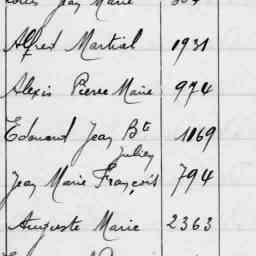 Louis Jean Marie
Alfred Martial 1931
Alexis Pierre Marie 974
Edouard Jean Bte 1069
Julien
Jean Marie François 794
Auguste Marie 2363